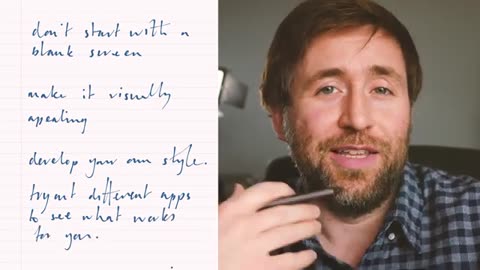 don't start with a
blank screen
make it visually
appealing
develop your own style.
try out different apps
to see what works
for you.